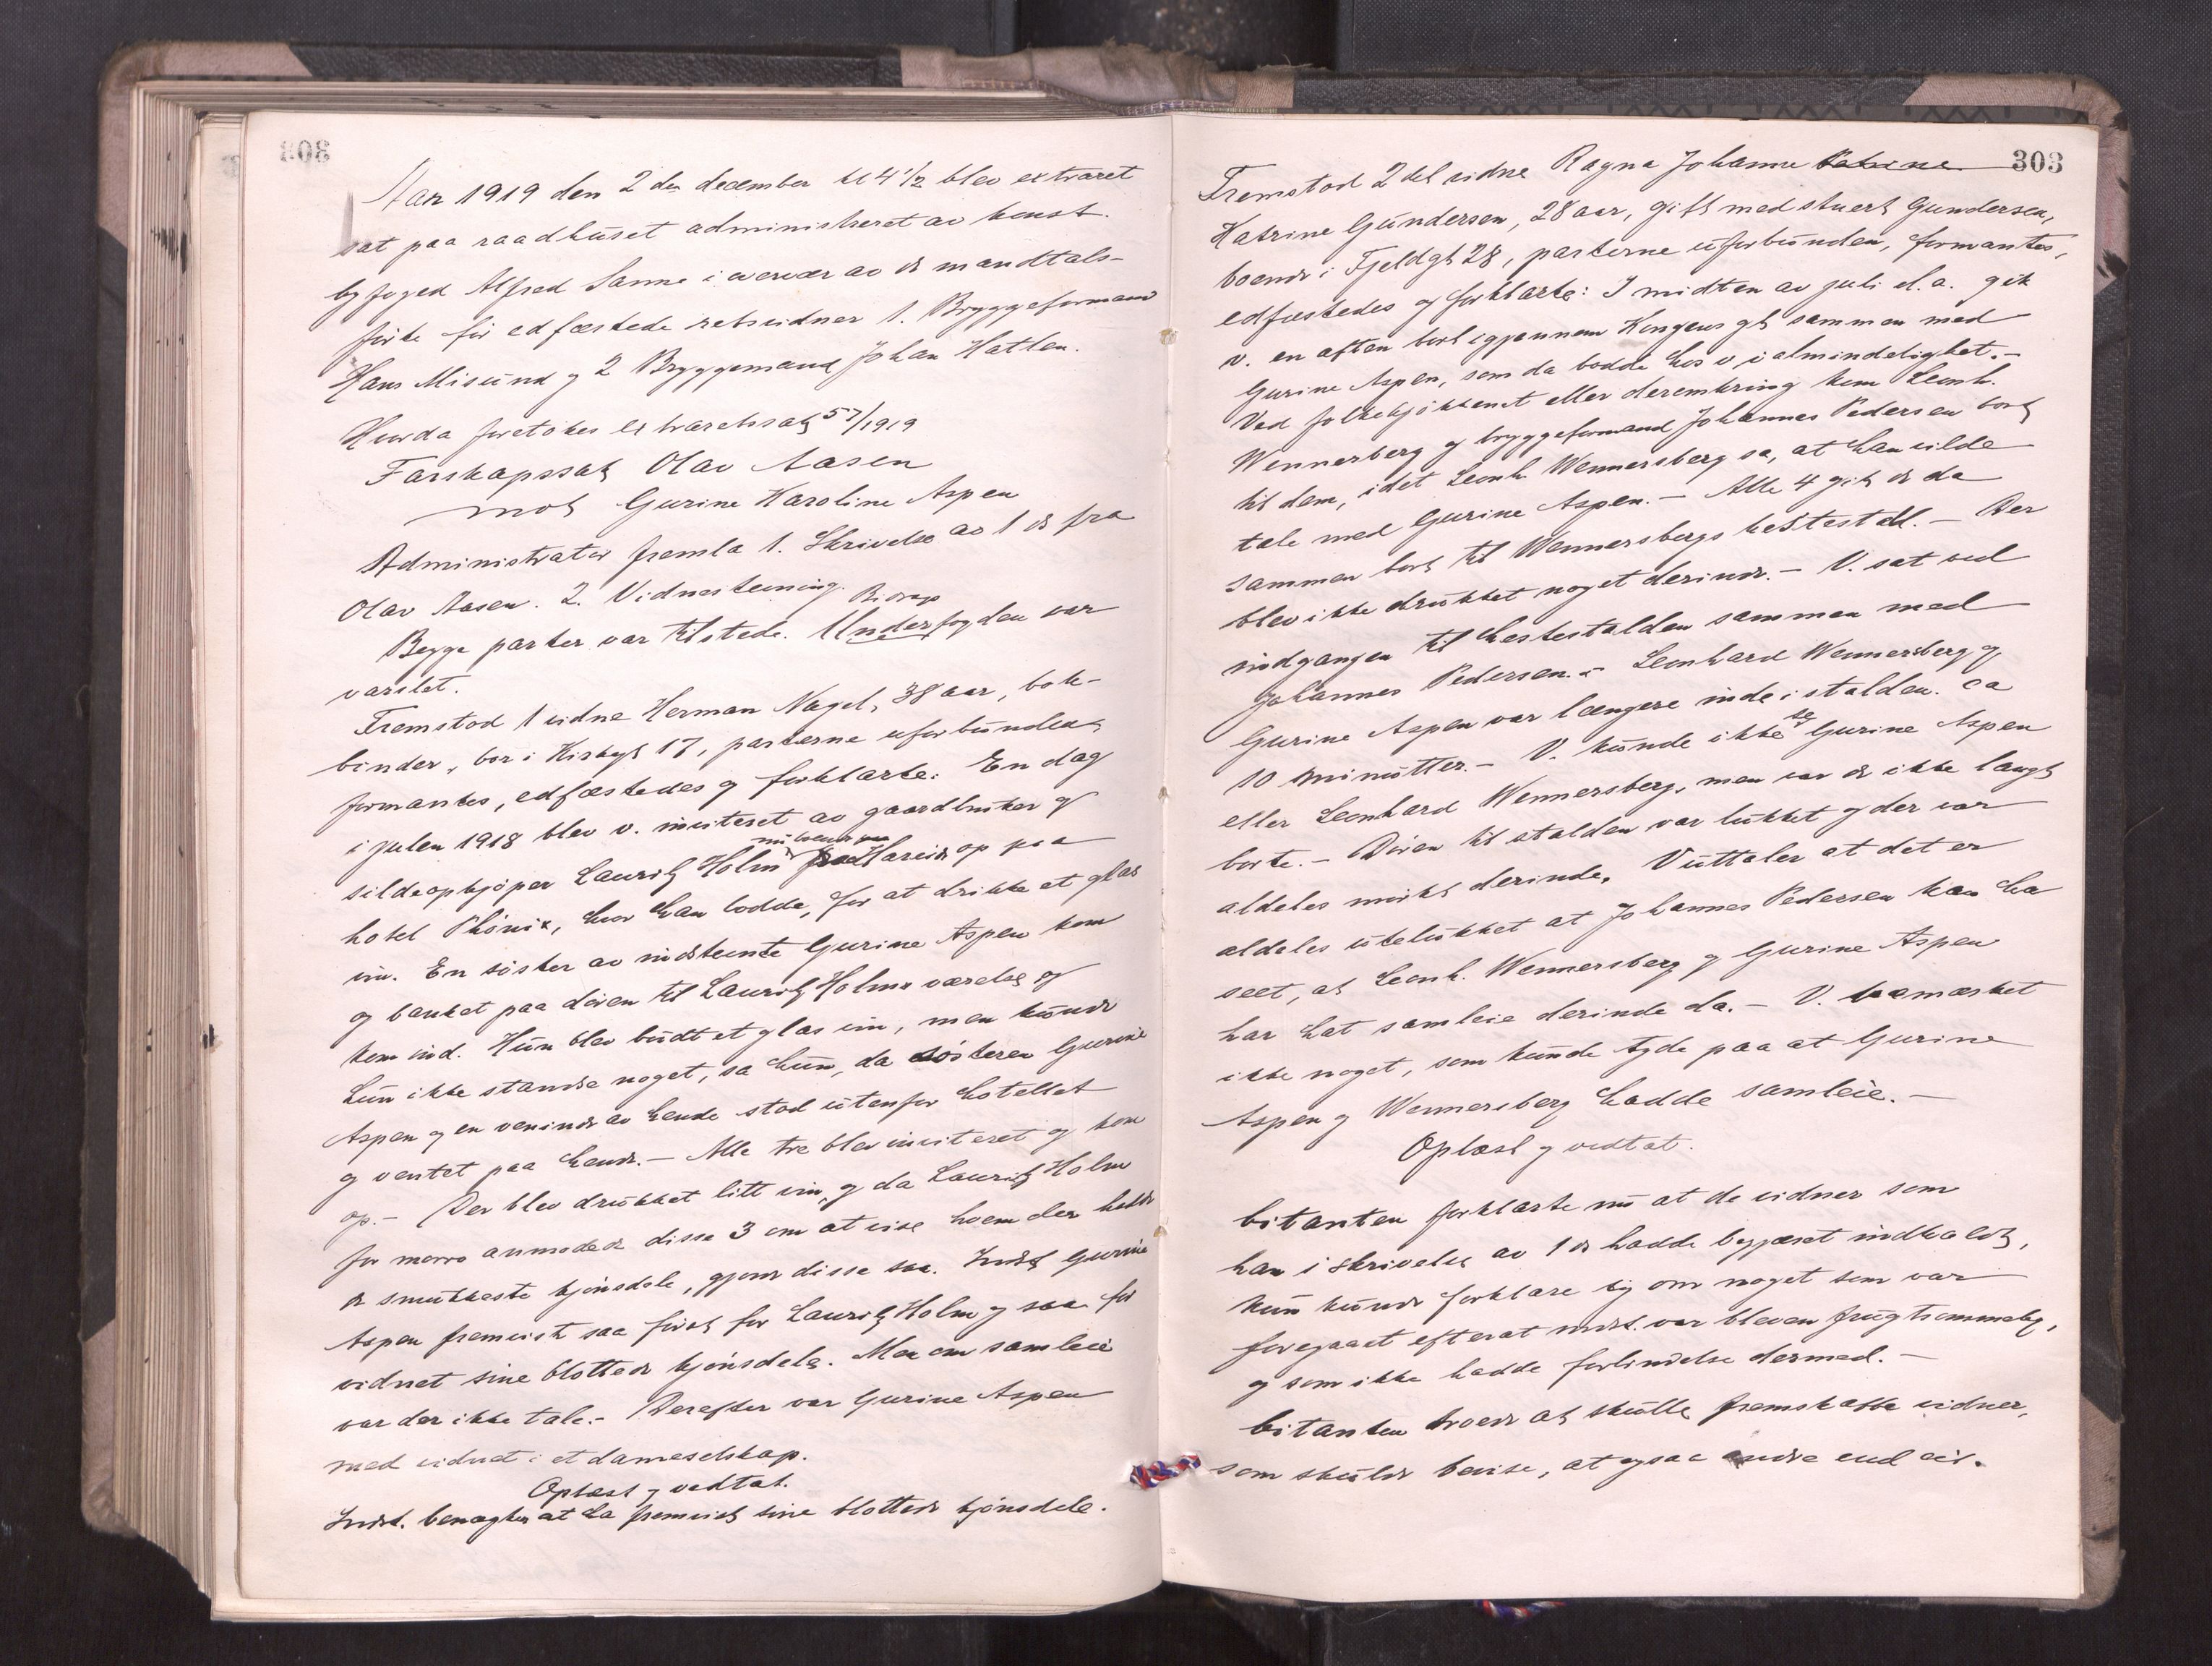 Aar 1919 den 2den december kl 4 1/2 blev extraret
sat paa raadhuset administreret av konst.
byfoged Alfred Sanne i overvær av de mandtals-
førte før edfæstede retsvidner 1. Bryggeformand
Hans Misund og 2 Bryggemand Johan Hatlen.
Hvorda foretokes extraretssak 57/1919
Farskapssak Olav Aasen
mot Gurine Karoline Aspen
Administrator fremla 1. Skrivelse av 1 ds fra
Olav Aasen. 2. Vidnestevning.
Bidrags
Begge parter var tilstede. Underfogden var
varslet.
Fremstod 1 vidne Herman Nagel, 38 aar, bok-
binder, bor i Kirkegt 17, parterne uforbunden,
formantes, edfæstedes og forklarte: En dag
i julen 1918 blev v. inviteret av gaardbruker og
sildeopkjøper Lauritz Holm fra Hareid op paa
hotel Phønix, hvor han bodde, for at drikke et glas
vin. En søster av indstevnte Gurine Aspen kom
og banket paa døren til Lauritz Holms værelse og
kom ind. Hun blev budt et glas vin, men kunde
hun ikke standse noget, sa hun, da søsteren Gurine
Aspen og en veninde av hende stod utenfor hotellet
og ventet paa hende. - Alle tre blev inviteret og kom
op. - Der blev drukket litt vin, og da Lauritz Holm
for morro anmodede disse 3 om at vise hvem der hadde
de smukkeste kjønsdele, gjorde disse saa. Indst Gurine
Aspen fremviste saa først for Lauritz Holm og saa for
vidnet sine blottede kjønsdele. Men om samleie
var der ikke tale. - Derefter var Gurine Aspen
med vidnet i et dameselskap.
Oplæst og vedtat.
Indst. benægter at ha fremvist sine blottede kjønsdele.
303
Fremstod 2det vidne Ragna Johanne
Katrine Gundersen, 28 aar, gift med stuert Gundersen,
boende i Fjeldgt 28, parterne uforbunden, formantes,
edfæstedes og forklarte: I midten av juli d.a. gik
v. en aften bort igjennem Kongens gt sammen med
Gurine Aspen, som da bodde hos v. i almindelighet. -
Ved folkekjøkkenet eller deromkring kom Leonh.
Wennersberg og bryggeformand Johannes Pedersen bort
til dem, idet Leonh Wennersberg sa, at han vilde
tale med Gurine Aspen. - Alle 4 gik de da
sammen bort til Wennersbergs hestestald. - Der
blev ikke drukket noget derinde. - V. sat ved
indgangen til hestestalden sammen med
Johannes Pedersen. - Leonhard Wennersberg og
Gurine Aspen var længere inde i stalden. ca
10 minutter. - V. kunde ikke se Gurine Aspen
eller Leonhard Wennersberg, men var de ikke langt
borte. - Døren til stalden var lukket og der var
aldeles mørkt derinde. V uttaler at det er
aldeles utelukket at Johannes Pedersen kan ha
seet, at Leonh. Wennersberg og Gurine Aspen
har hat samleie derinde da. - V. bemærket
ikke noget, som kunde tyde paa at Gurine
Aspen og Wennersberg hadde samleie. -
Oplæst og vedtat.
Citanten forklarte nu at de vidner som
han i skrivelse av 1 ds hadde begjæret indkaldt,
kun kunde forklare sig om noget som var
foregaaet efterat indst. var bleven frugtsommelig,
og som ikke hadde forbindelse dermed. -
Citanten trodde at skulle fremskaffe vidner,
som skulde bevise, at ogsaa andre end cit.